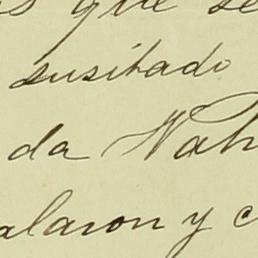 s que se
susitado
da Nah
alaron y c